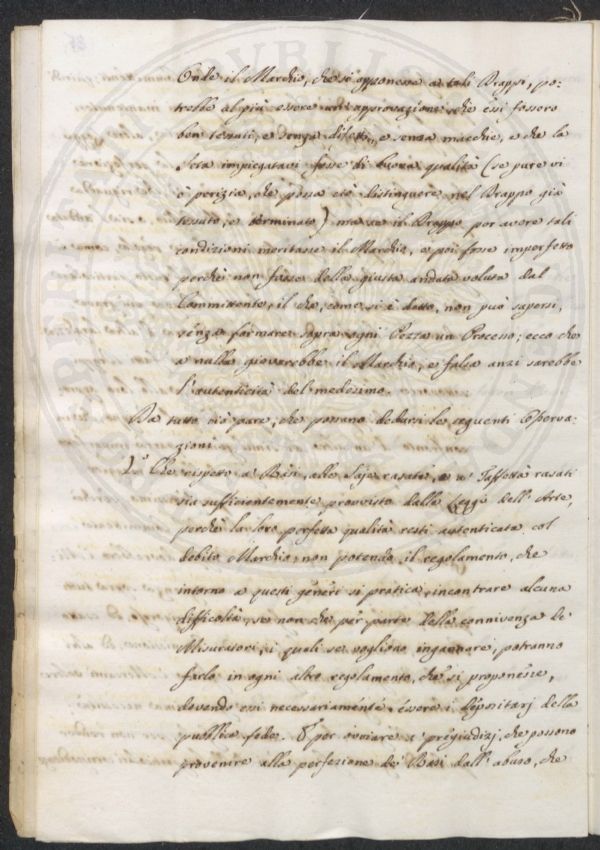 Onde il Marchio, che si apponesse a tali Drappi, po-
trebbe al più essere un' approvazione che essi fossero
ben tessuti, e senza difetti, e senza macchie, e che la
Seta impiegatavi fosse di buona qualità (se pure vi
è perizia, che possa ciò distinguere nel Drappo già
tessuto, e terminato) ma se il Drappo per avere tali
condizioni meritasse il Marchio, e poi fosse imperfetto
perchè non fosse della giusta andata voluta dal
Committente, il che, come si è detto, non può sapersi,
senza formare sopra ogni Pezza un Processo; ecco che
a nulla gioverebbe il Marchio, e falsa anzi sarebbe
l'autenticità del medesimo.
Da tutto ciò pare, che possano dedursi le seguenti Osserva-
zioni
1.° Che rispetto a' Rasi, alle Saje rasate, e a' Taffettà rasati
sia sufficientemente provvisto dalle Leggi dell' Arte,
perchè la loro perfetta qualità resti autenticata col
debito Marchio, non potendo il regolamento, che
intorno a questi generi si pratica, incontrare alcuna
difficoltà, se non che per parte della connivenza de'
Misuratori, i quali se vogliono ingannare, potranno
farlo in ogni altro regolamento, che si proponesse,
dovendo essi necessariamente essere i Depositarj della
pubblica fede. E per ovviare a' pregiudizj, che possono
provenire alla perfezione de' Rasi dall' abuso, che